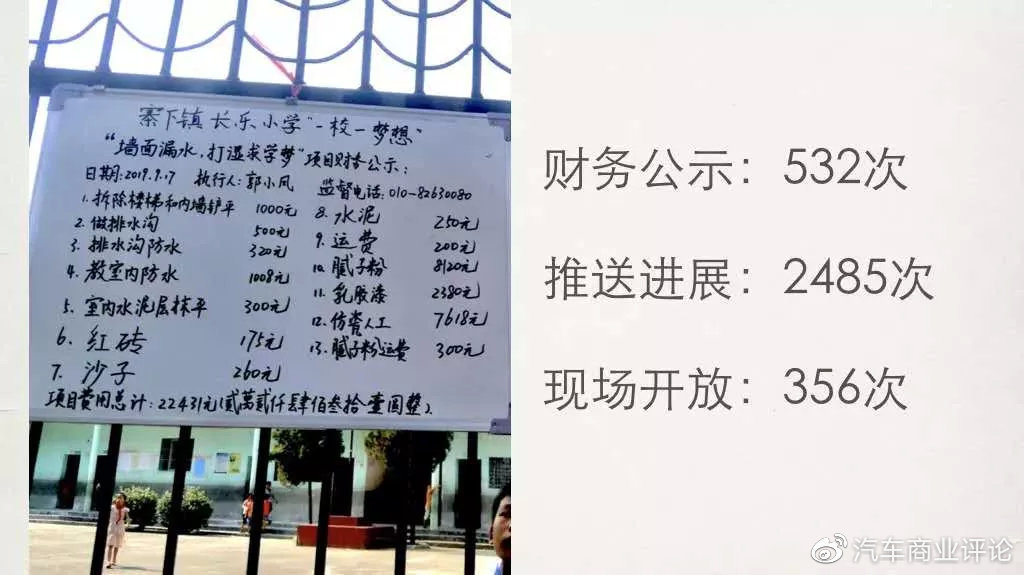 寨下镇长乐小学"一校一梦想"
"墙面漏水,打湿求学梦"项目财务公示:
日期:2019.9.17 执行人:郭小凤 监督电话:010-82630080
1.拆除楼梯和内墙铲平 1000元
2.做排水沟 500元
3.排水沟防水 320元
4.教室内防水 1008元
5.室内水泥层抹平 300元
6.红砖 175元
7.沙子 260元
8.水泥 250元
9.运费 200元
10.腻子粉 8120元
11.乳胶漆 2380元
12.仿瓷人工 7618元
13.腻子粉运费 300元
项目费用总计:22431元(贰萬贰仟肆佰叁拾壹圆整).
财务公示：532次
推送进展：2485次
现场开放：356次
汽车商业评论